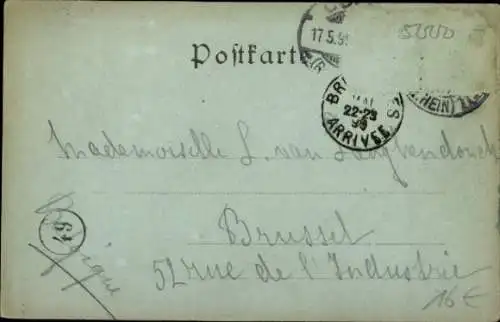 52550
17.5.99
Postkarte
BR
MAI
22-23
99
ARRIVEE
(RHEIN)
Mademoiselle L. van
61
Belgique
Brussel
52 rue de l'Industrie
16 €